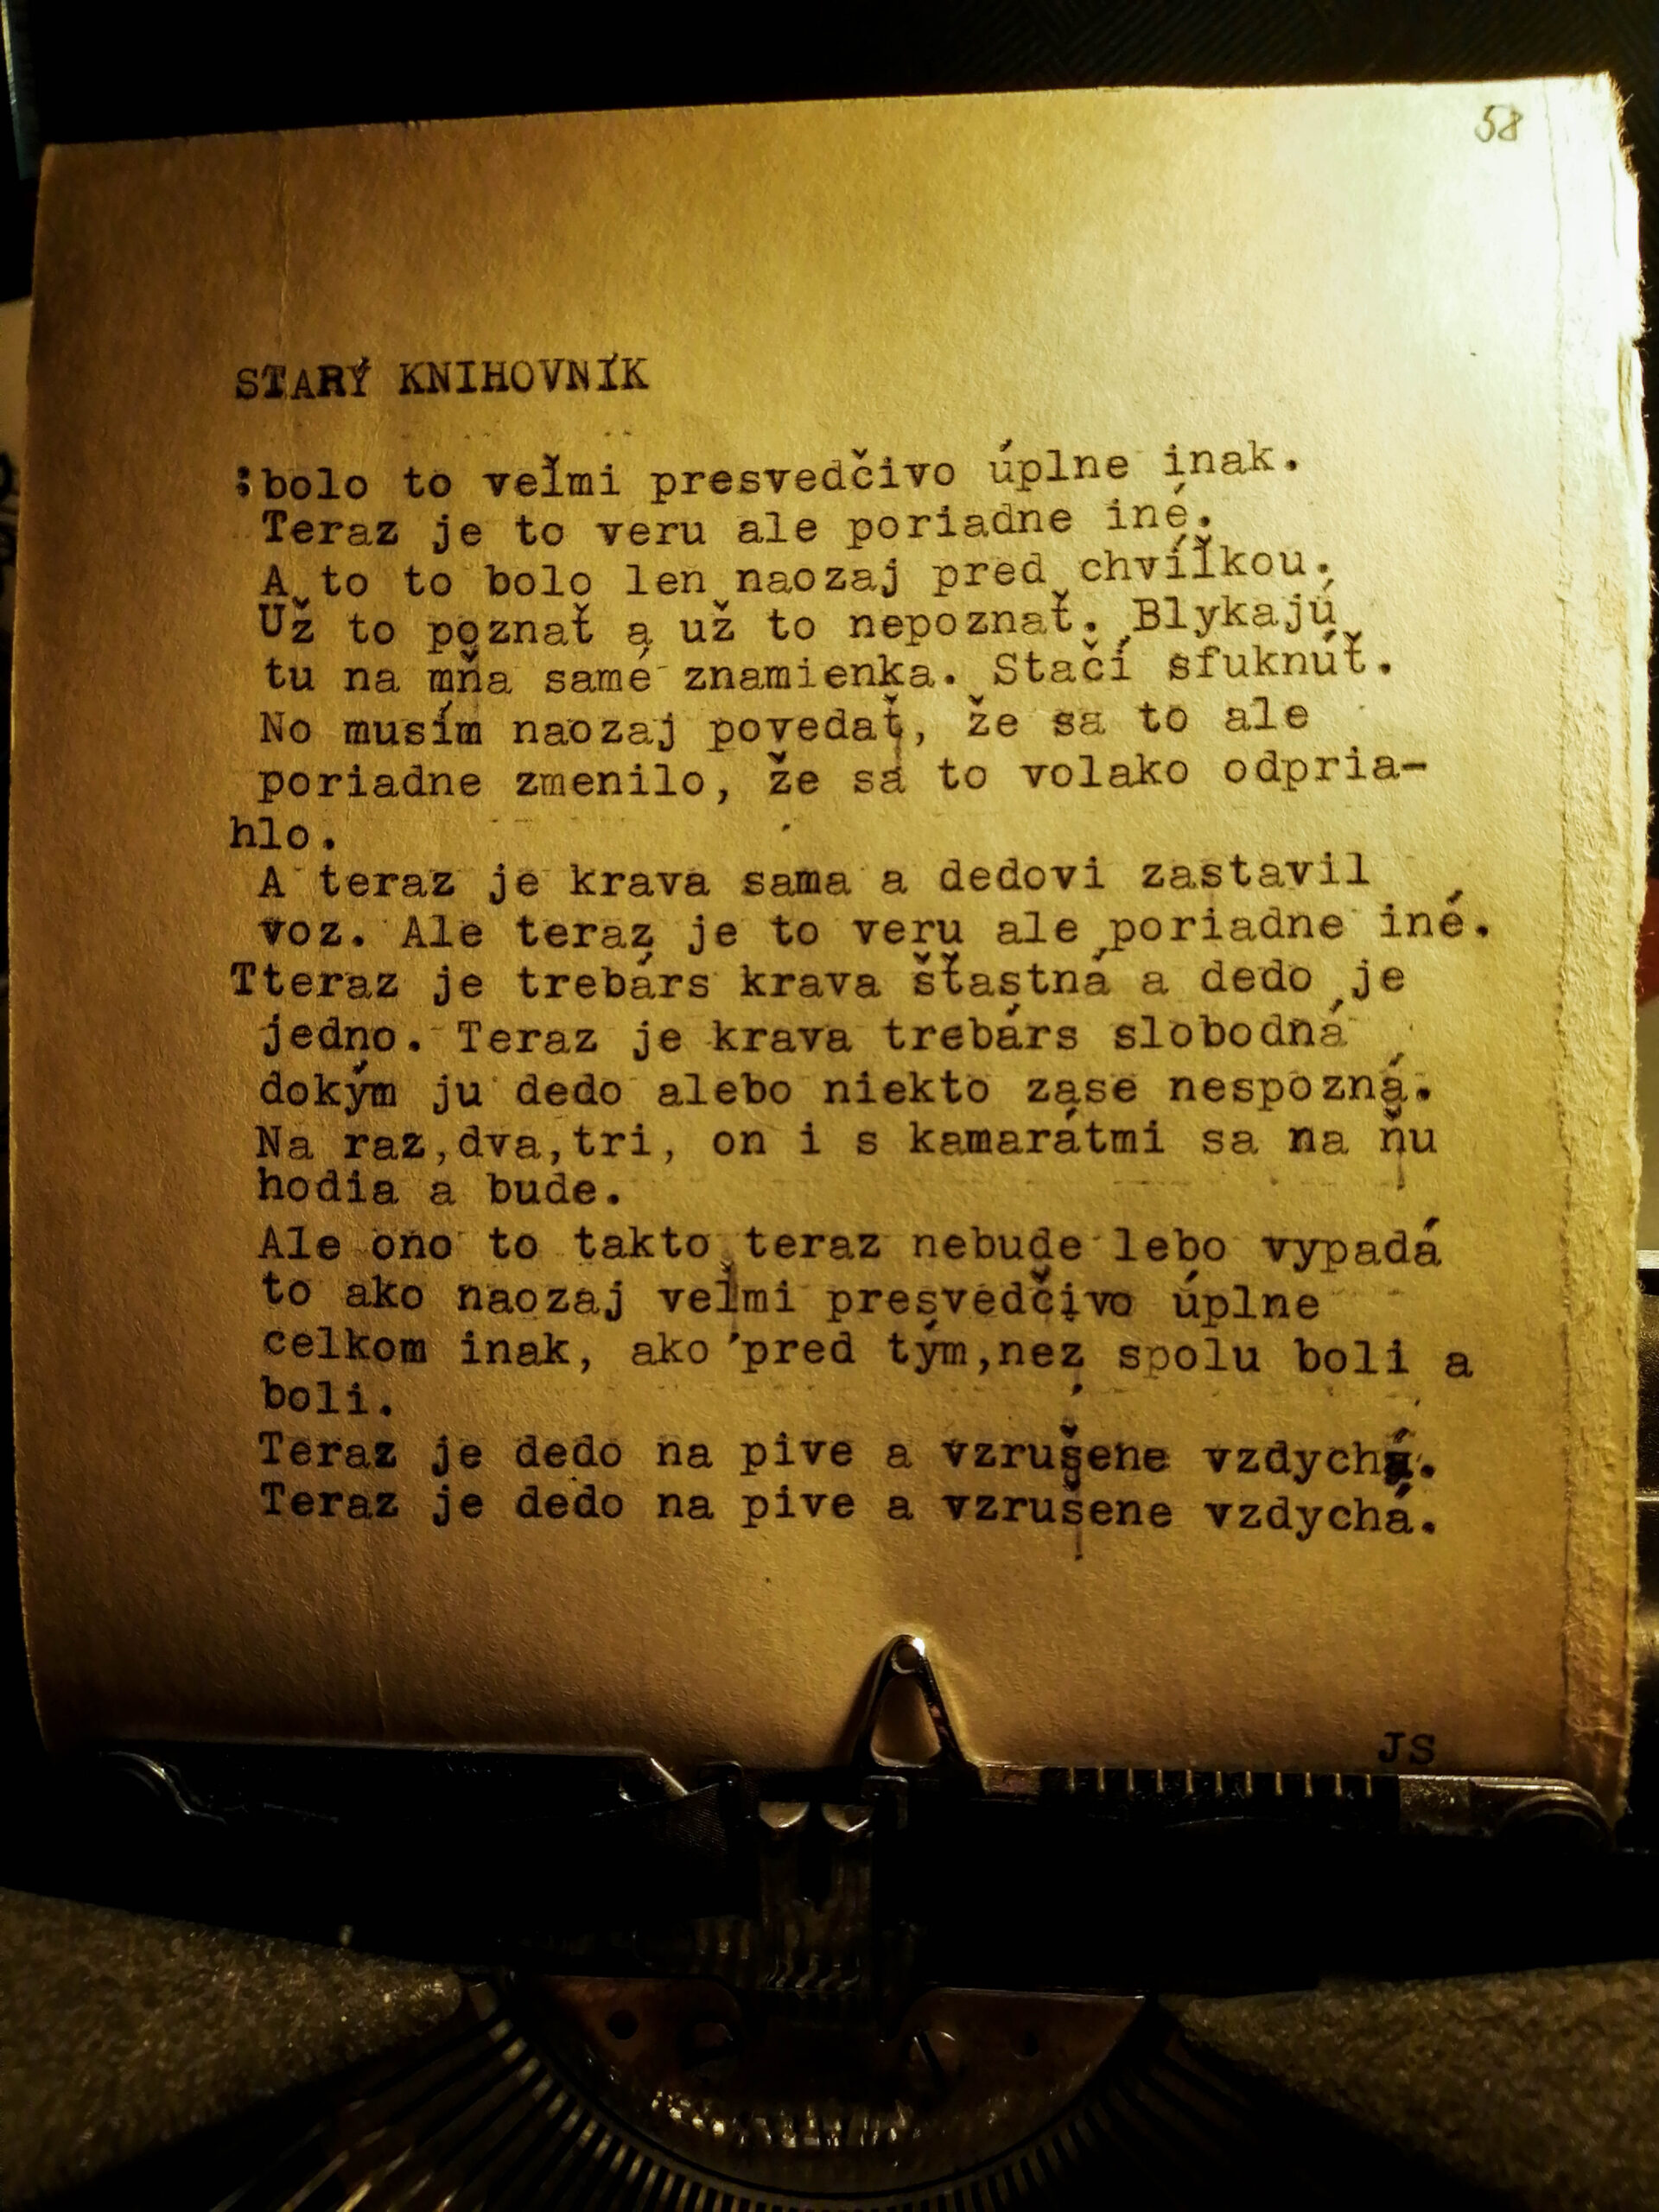 58
STARÝ KNIHOVNÍK
:bolo to veľmi presvedčivo úplne inak.
Teraz je to veru ale poriadne iné.
A to to bolo len naozaj pred chvíľkou.
Už to poznať a už to nepoznať. Blykajú
tu na mňa samé znamienka. Stačí sfuknúť.
No musím naozaj povedať, že sa to ale
poriadne zmenilo, že sa to volako odpria-
hlo.
A teraz je krava sama a dedovi zastavil
voz. Ale teraz je to veru ale poriadne iné.
Tteraz je trebárs krava šťastná a dedo je
jedno. Teraz je krava trebárs slobodná
dokým ju dedo alebo niekto zase nespozná.
Na raz,dva,tri, on i s kamarátmi sa na ňu
hodia a bude.
Ale ono to takto teraz nebude lebo vypadá
to ako naozaj veľmi presvedčivo úplne
celkom inak, ako pred tým,nez spolu boli a
boli.
Teraz je dedo na pive a vzrušene vzdychá.
Teraz je dedo na pive a vzrušene vzdychá.
JS